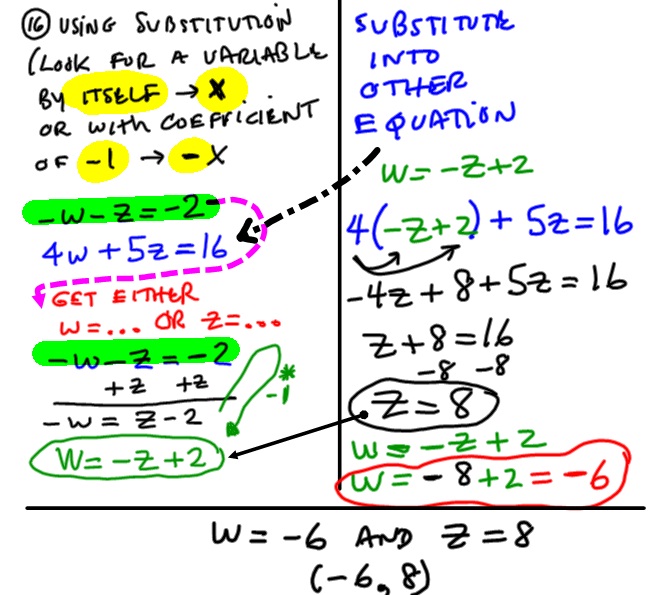 16 USING SUBSTITUTION
(LOOK FOR A VARIABLE
BY ITSELF → X
OR WITH COEFFICIENT
OF -1 → -X
-w-z=-2
4w+5z=16
GET EITHER
w=... OR z=...
-w-z=-2
+z +z
* -1
-w=z-2
w=-z+2
SUBSTITUTE
INTO
OTHER
EQUATION
w=-z+2
4(-z+2)+5z=16
-4z+8+5z=16
z+8=16
-8 -8
z=8
w=-z+2
w=-8+2=-6
w=-6 AND z=8
(-6,8)